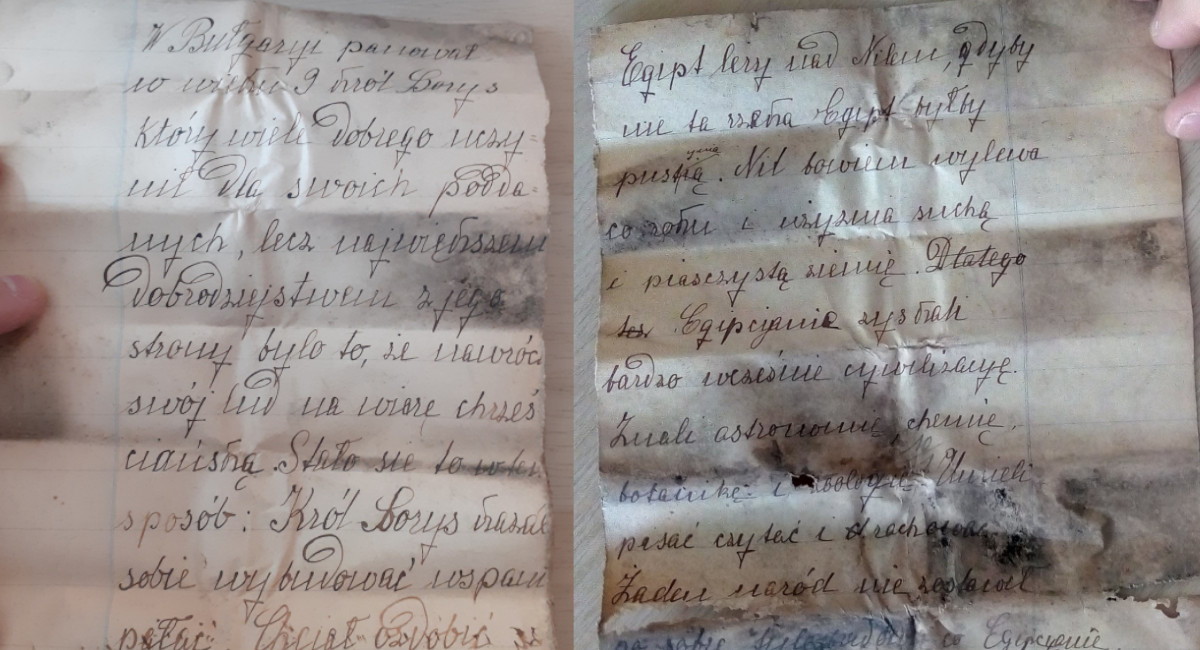 W Bułgaryi panował
w wieku 9 król Borys
który wiele dobrego uczy=
nił dla swoich podda=
nych, lecz największem
dobrodziejstwem z jego
strony było to, że nawróc
swój lud na wiarę chrześ
ciańską. Stało się to w ten
sposób: Król Borys kazał
sobie wybudować wspani
pałac. Chciał ozdobić
Egipt leży nad Nilem, gdyby
nie ta rzeka Egipt byłby
pustynią. Nil bowiem wylewa
co roku i użyznia suchą
i piasczystą ziemię. Dlatego
też Egipcjanie zyskali
bardzo wcześnie cywilizacyę.
Znali astronomię, chemię,
botanikę i zoologię. Umieli
pisać czytać i rachować.
Żaden naród nie zostawił
po sobie tyle co Egipcjanie,